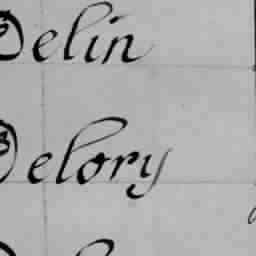 Delin
Delory